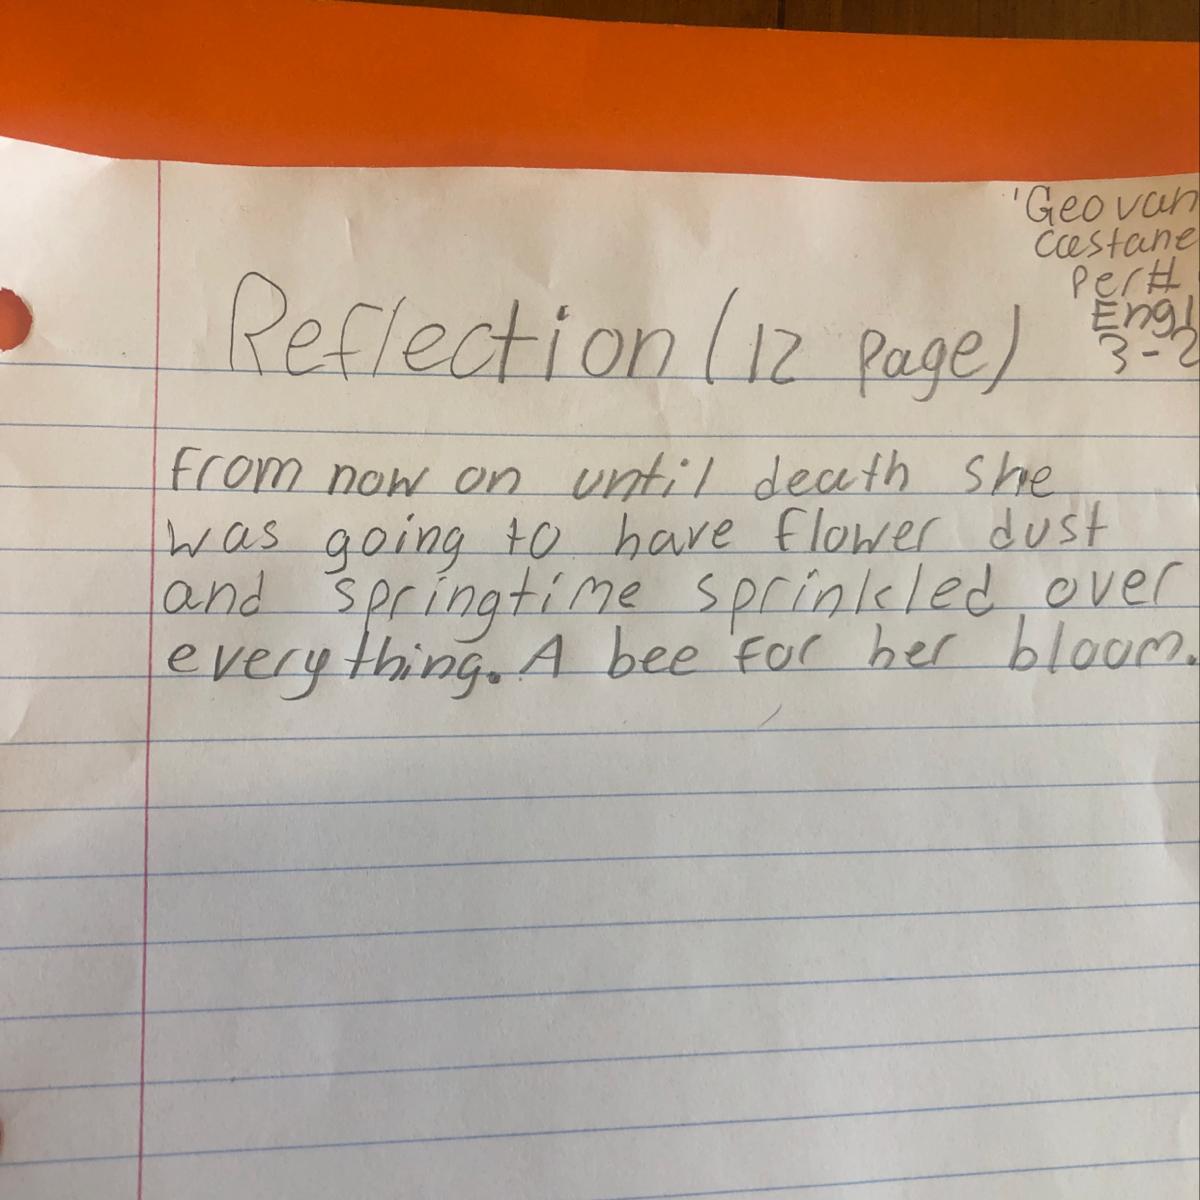 Geovan
Castane
Per#
Engl
3-2
Reflection (12 page)
From now on until death she
was going to have flower dust
and springtime sprinkled over
everything. A bee for her bloom.